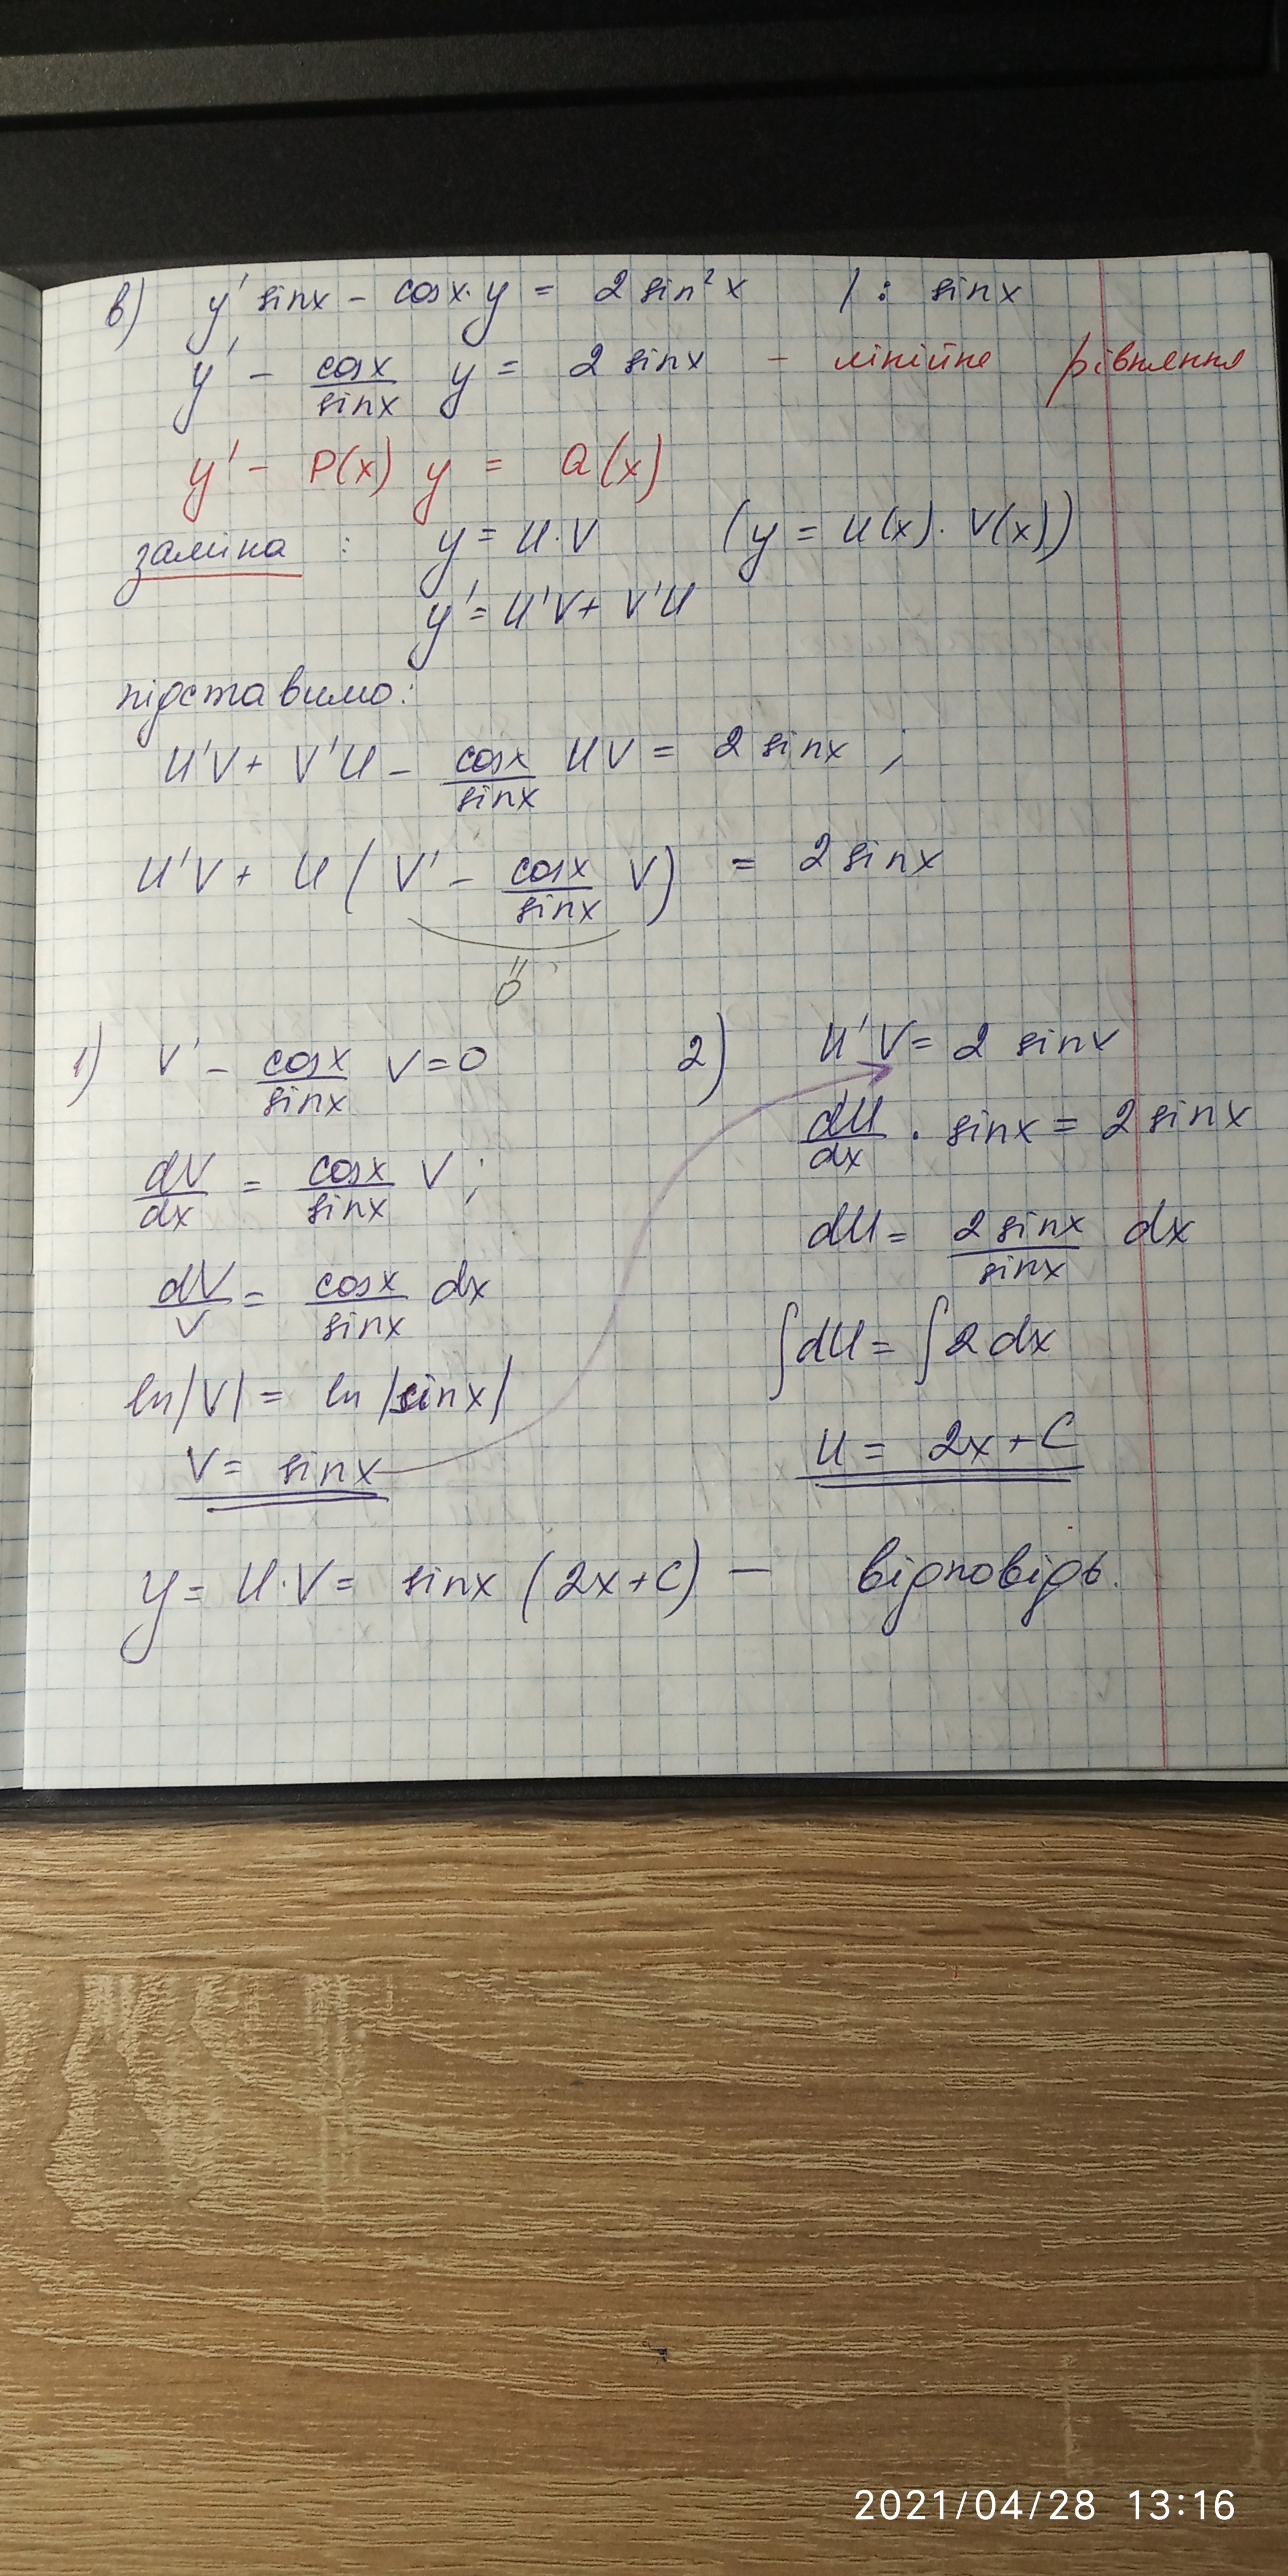 в) y' sinx - cosx·y = 2 sin²x / : sinx
y' - cosx/sinx y = 2 sinx - лінійне рівняння
y' - P(x) y = Q(x)
заміна : y = U·V (y = U(x)·V(x))
y' = U'V + V'U
підставимо:
U'V + V'U - cosx/sinx UV = 2 sinx ;
U'V + U (V' - cosx/sinx V) = 2 sinx
"
0
1) V' - cosx/sinx V = 0
dV/dx = cosx/sinx V ;
dV/V = cosx/sinx dx
ln|V| = ln|sinx|
V = sinx
2) U'V = 2 sinx
dU/dx · sinx = 2 sinx
dU = 2 sinx/sinx dx
∫dU = ∫2dx
U = 2x + C
y = U·V = sinx (2x + C) - відповідь.
2021/04/28 13:16